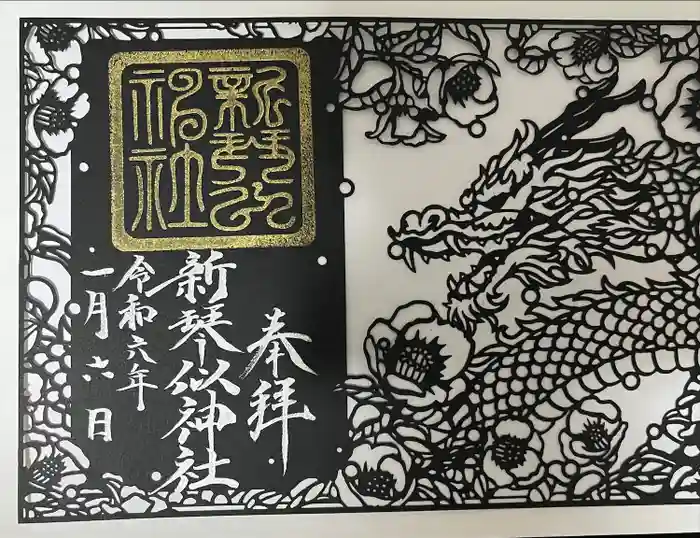 新琴似
神社
奉拝
新琴似神社
令和六年
一月六日